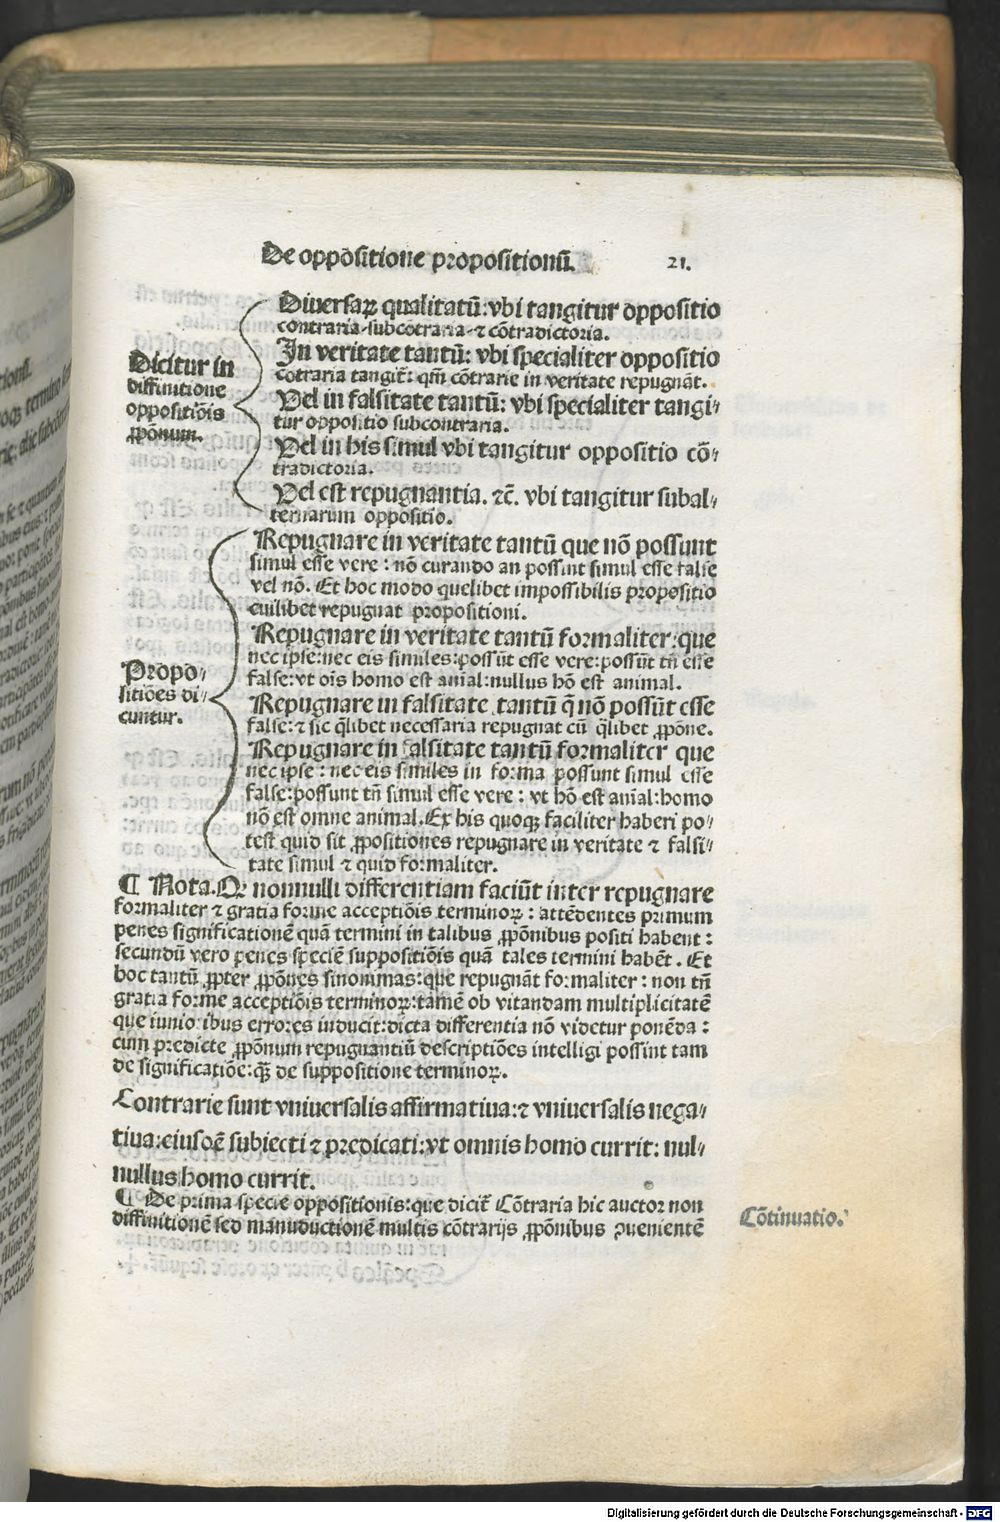 De oppositione propositionū. 21.
Dicitur in
diffinitione
oppositiōis
ꝓpōnum.
Diversaꝝ qualitatū: vbi tangitur oppositio
contraria-subcōtraria-⁊ cōtradictoria.
In veritate tantū: vbi specialiter oppositio
cōtraria tangit̃: qm̄ cōtrarie in veritate repugnāt.
Vel in falsitate tantū: vbi specialiter tangi⸗
tur oppositio subcontraria.
Vel in his simul vbi tangitur oppositio cō⸗
tradictoria.
Vel est repugnantia. ⁊c̃. vbi tangitur subal⸗
ternarum oppositio.
Propo⸗
sitiōes di⸗
cuntur.
Repugnare in veritate tantū que nō possunt
simul esse vere: nō curando an possint simul esse false
vel nō. Et hoc modo quelibet impossibilis propositio
cuilibet repugnat propositioni.
Repugnare in veritate tantū formaliter: que
nec ipse: nec eis similes: possūt esse vere: possūt tñ esse
false: vt oīs homo est aīal: nullus hō est animal.
Repugnare in falsitate tantū q̄ nō possūt esse
false: ⁊ sic q̄libet necessaria repugnat cū q̄libet ꝓpōne.
Repugnare in falsitate tantū formaliter que
nec ipse: nec eis similes in forma possunt simul esse
false: possunt tñ simul esse vere: vt hō est aīal: homo
nō est omne animal. Ex his quoqꝫ faciliter haberi po⸗
test quid sit ꝓpositiones repugnare in veritate ⁊ falsi⸗
tate simul ⁊ quid formaliter.
¶ Nota. Qꝛ nonnulli differentiam faciūt inter repugnare
formaliter ⁊ gratia forme acceptiōis terminoꝝ: attēdentes primum
penes significationē quā termini in talibus ꝓpōnibus positi habent:
secundū vero penes speciē suppositiōis quā tales termini habēt. Et
hoc tantū ꝓpter ꝓpōnes sinonimas: que repugnāt formaliter: non tñ
gratia forme acceptiōis terminoꝝ: tamē ob vitandam multiplicitatē
que iunioribus errores inducit: dicta differentia nō videtur ponēda:
cum predicte ꝓpōnum repugnantiū descriptiōes intelligi possint tam
de significatiōe: qꝫ̄ de suppositione terminoꝝ.
Contrarie sunt vniuersalis affirmatiua: ⁊ vniuersalis nega⸗
tiua: eiusdē subiecti ⁊ predicati: vt omnis homo currit: nul⸗
nullus homo currit.
¶ De prima specie oppositionis: que dicit̃ Cōtraria hic auctor non
diffinitionē sed manuductionē multis cōtrarijs ꝓpōnibus ꝯuenientē
Cōtinuatio.
Digitalisierung gefördert durch die Deutsche Forschungsgemeinschaft - DFG